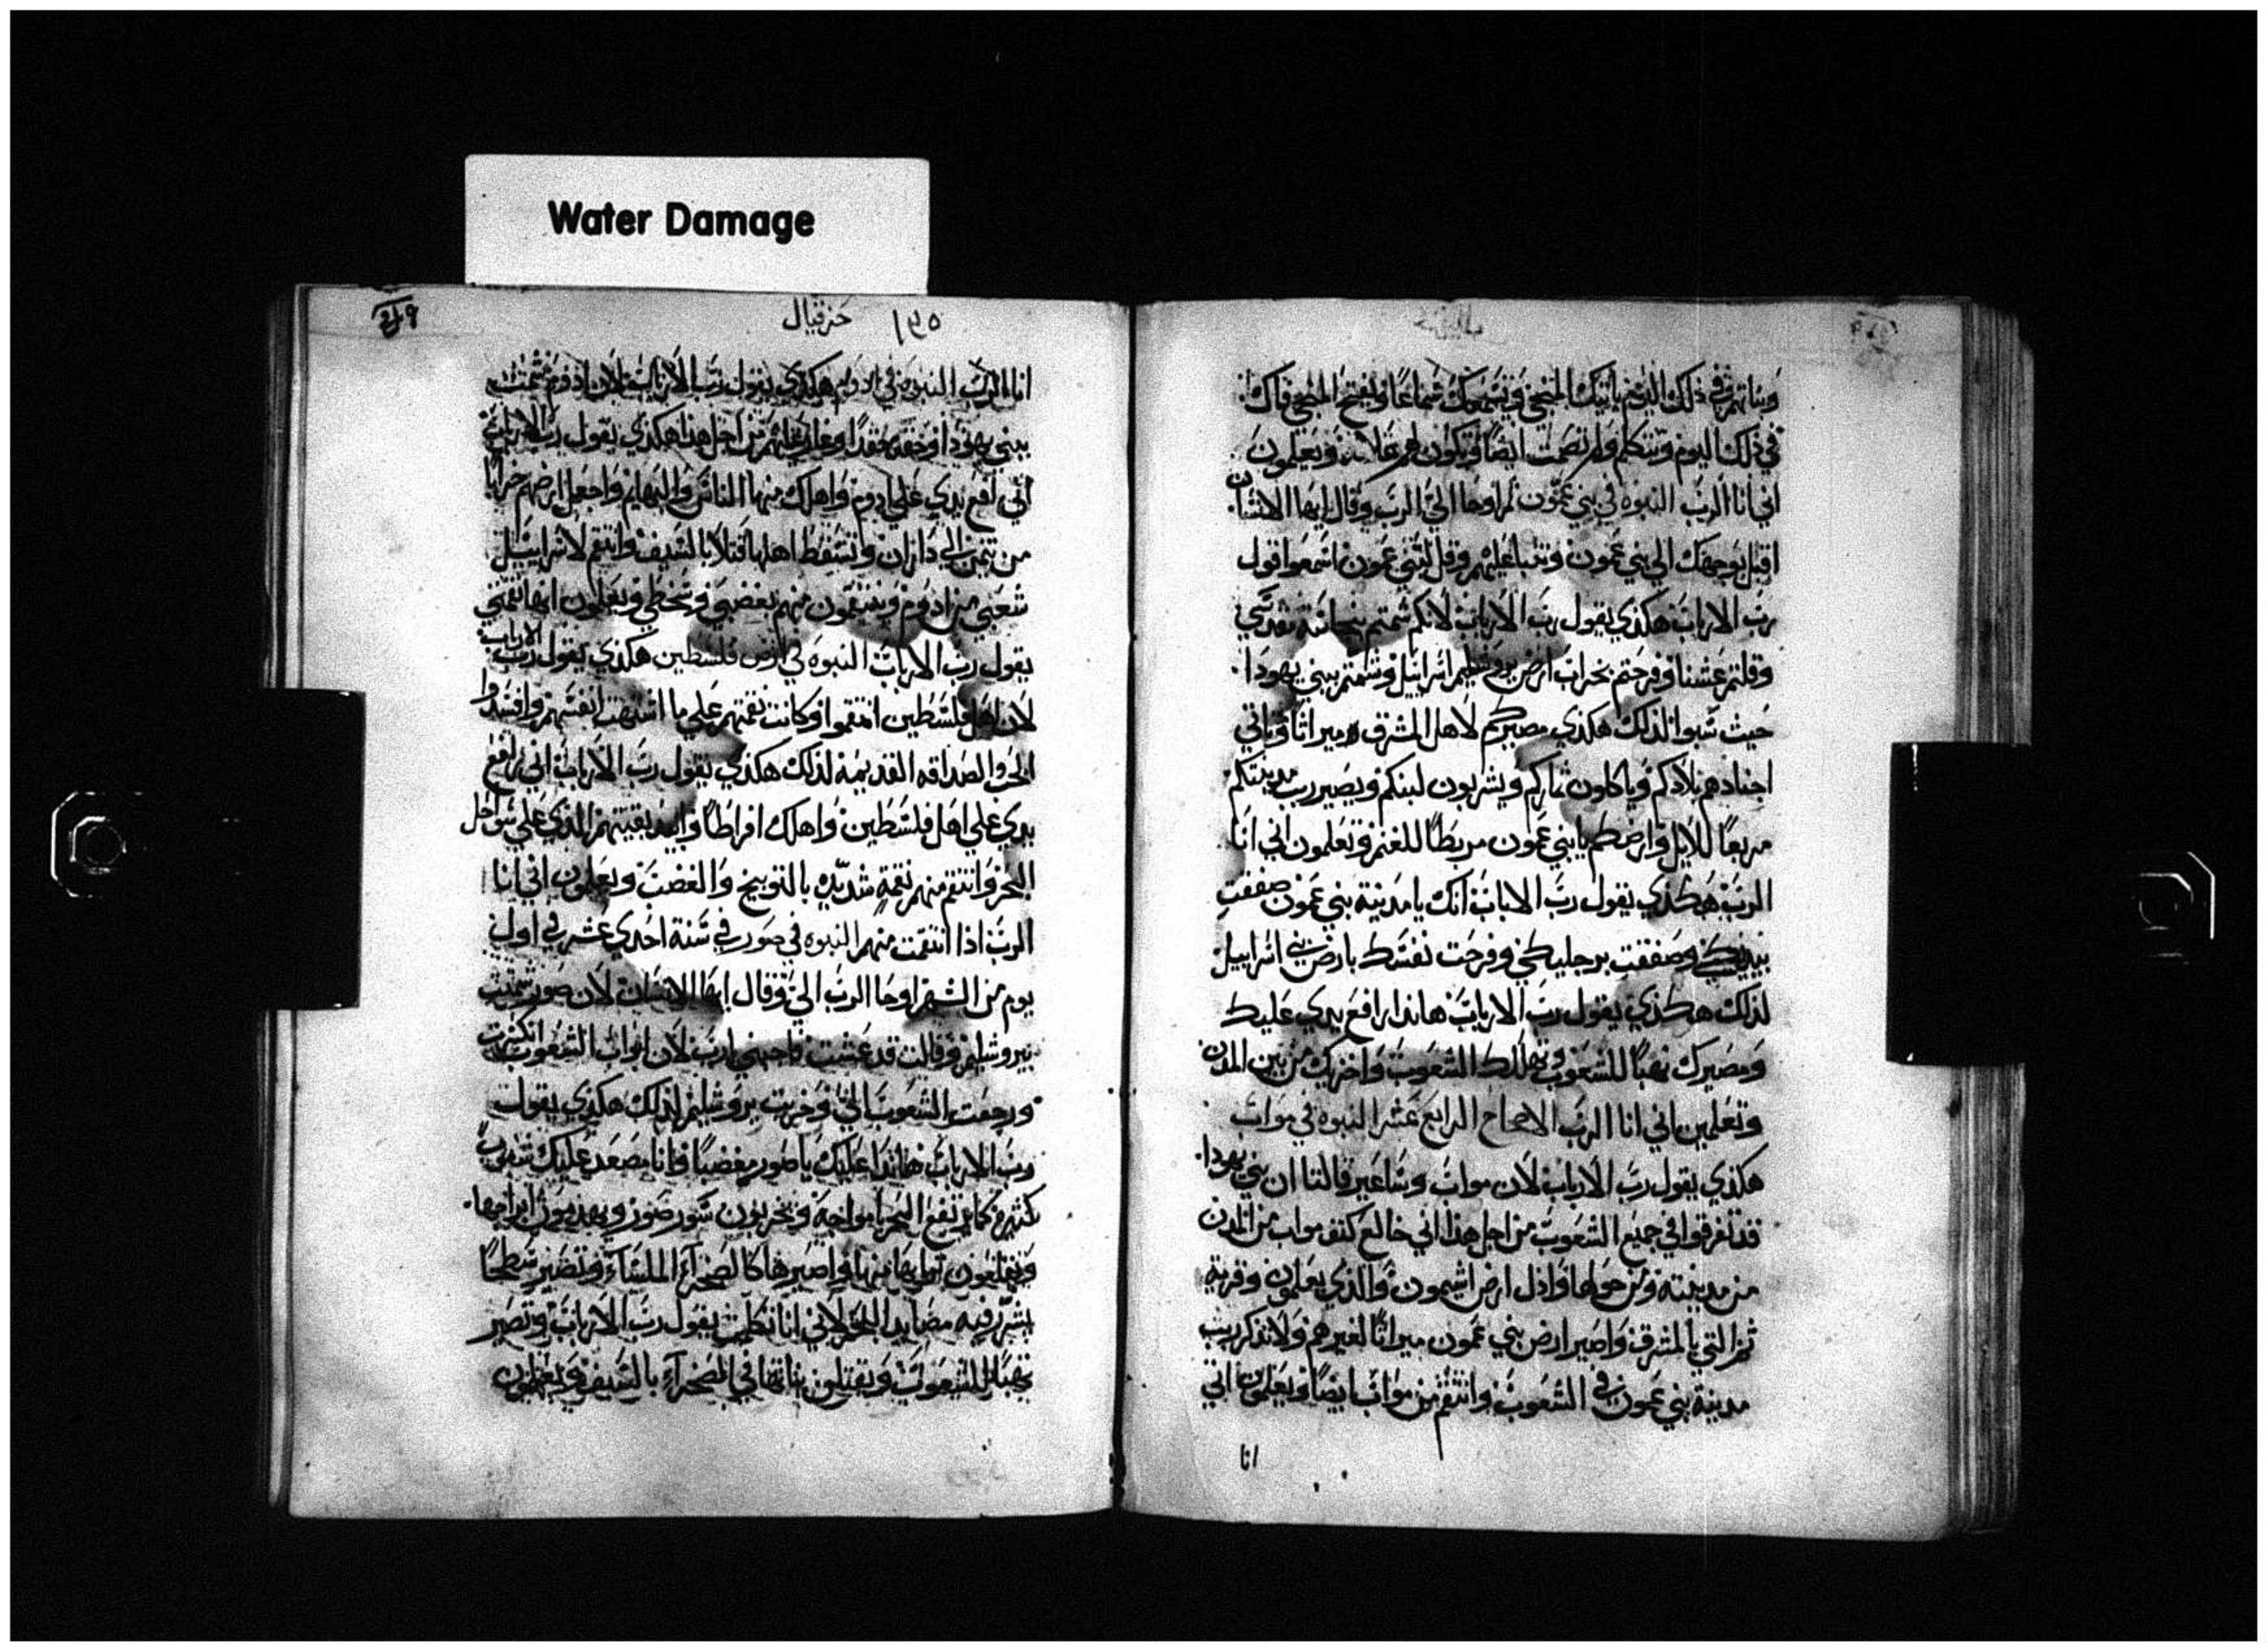 Water Damage
وبناتهم في ذلك اليوم ياتيك المنجي ويسمعك سماعًا ويفتح المنجي فاك
في ذلك اليوم وتتكلم ولم تصمت ايضًا وتكون لهم علامة ويعلمون
اني انا الرب النبوه في بني عمون ثم اوحا الي الرب وقال ايها الانسان
اقبل بوجهك الي بني عمون وتنبا عليهم وقل لبني عمون اسمعوا قول
رب الارباب هكذي يقول رب الارباب لانكم شمتم
وقلتم عشنا وفرحتم بخراب ارض يروشليم اسراييل وشمتم ببني يهودا
حيث سبوا لذلك هكذي مصيركم لاهل المشرق ميراثًا وياتي
اجنادهم بلادكم وياكلون ثماركم ويشربون لبنكم ويصير رب مدينتكم
مربعًا للابل وارضكم يا بني عمون مربطًا للغنم وتعلمون اني انا
الرب هكذي يقول رب الاباب انك يا مدينة بني عمون صفقت
بيديكي وصفقت برجليكي وفرحت نفسك بارض بني اسراييل
لذلك هكذي يقول رب الارباب هانذا رافع يدي عليك
ومصيرك نهبًا للشعوب وتهلك الشعوب واخزيك من بين المدن
وتعلمين اني انا الرب الاصحاح الرابع عشر النبوه في مواب
هكذي يقول رب الارباب لان مواب وساعير قالتا ان بني يهودا
قد تفرقوا في جميع الشعوب من اجل هذا اني خالع كتف مواب من المدن
من مدينته ومن حولها واذل ارض اشيمون والذي يعلمون وقرية
ثم التي بالمشرق واصير ارض بني عمون ميراثًا لغيرهم ولا تذكر رب
مدينة بني عمون في الشعوب وانتقم من مواب ايضًا ويعلمون اني
انا
حزقيال ١٧٥
انا الرب النبوه في ادوم هكذي يقول رب الارباب لان ادوم شمتت
ببني يهودا وحقد حقدًا عليهم من اجل هذا هكذي يقول رب الارباب
اني ارفع يدي علي ادوم واهلك منها الناس والبهايم واجعل ارضهم خرابًا
من تيمن الي داران وتسقط اهلها قتلا بالسيف وانتقم لاسراييل
شعبي من ادوم وينتقمون منهم بغضبي وسخطي ويعلمون انها نقمتي
يقول رب الارباب النبوه في ارض فلسطين هكذي يقول رب الارباب
لان اهل فلسطين انتقموا وكانت نقمتهم علي ما اشتهت انفسهم وافسدوا
الحق والصداقه القديمة لذلك هكذي يقول رب الارباب اني رافع
يدي علي اهل فلسطين واهلك افراطًا وابيد بقيتهم الذي علي سواحل
البحر وانتقم منهم نقمة شديده بالتوبيخ والغضب ويعلمون اني انا
الرب اذا انتقمت منهم النبوه في صور في سنة احدي عشر في اول
يوم من الشهر اوحا الرب الي وقال ايها الانسان لان صور شمتت
بيروشليم وقالت قد عشت لان ابواب الشعوب انكسرت
ورجعت الشعوب الي وخربت يروشليم لذلك هكذي يقول
رب الارباب هانذا عليك يا صور مغضبًا وانا مصعد عليك شعوب
كثيره كما يرتفع البحر بامواجه ويخربون سور صور ويهدمون ابراجها
ويقلعون ترابها منها واصيرها كالصخرة الملساء وتصير سطحًا
يشر فيه مصايد البحر لاني انا تكلمت يقول رب الارباب وتصير
نهبًا للشعوب ويقتلون بناتها في الصحراء بالسيف ويعلمون